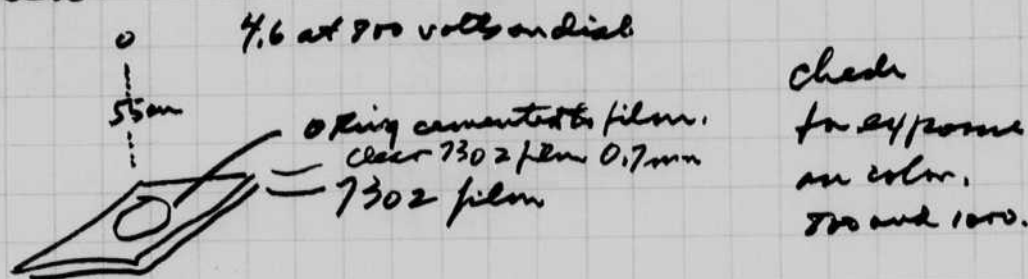 4.6 at 800 volts on dial
55cm
O Ring cemented to film.
clear 7302 film 0.7mm
7302 film
check
for exposure
on color.
800 and 1000.